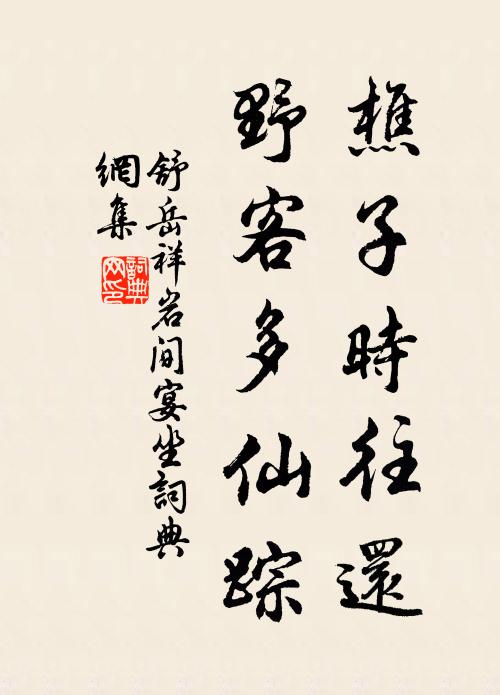 樵子時往還
野客多仙踪
舒岳祥岩间宴坐詞典
網集
詞典網印